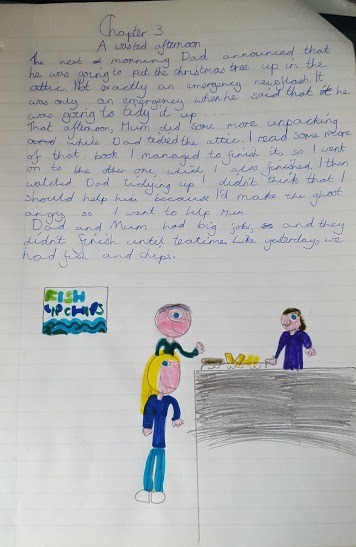 Chapter 3
A wasted afternoon
The next morning Dad announced that
he was going to put the christmas tree up in the
attic. Not exactly an emergency newsflash. It
was only an emergency when he said that he
was going to tidy it up......
That afternoon, Mum did some more unpacking
while Dad tidied the attic. I read some more
of that book. I managed to finish it, so I went
on to the other one, which I also finished. I then
watched Dad tidying up. I didn't think that I
should help him because I'd make the ghost
angry, so I went to help Mum.
Dad and Mum had big jobs, and they
didn't finish until teatime. Like yesterday, we
had fish and chips.
FISH
CHIPS